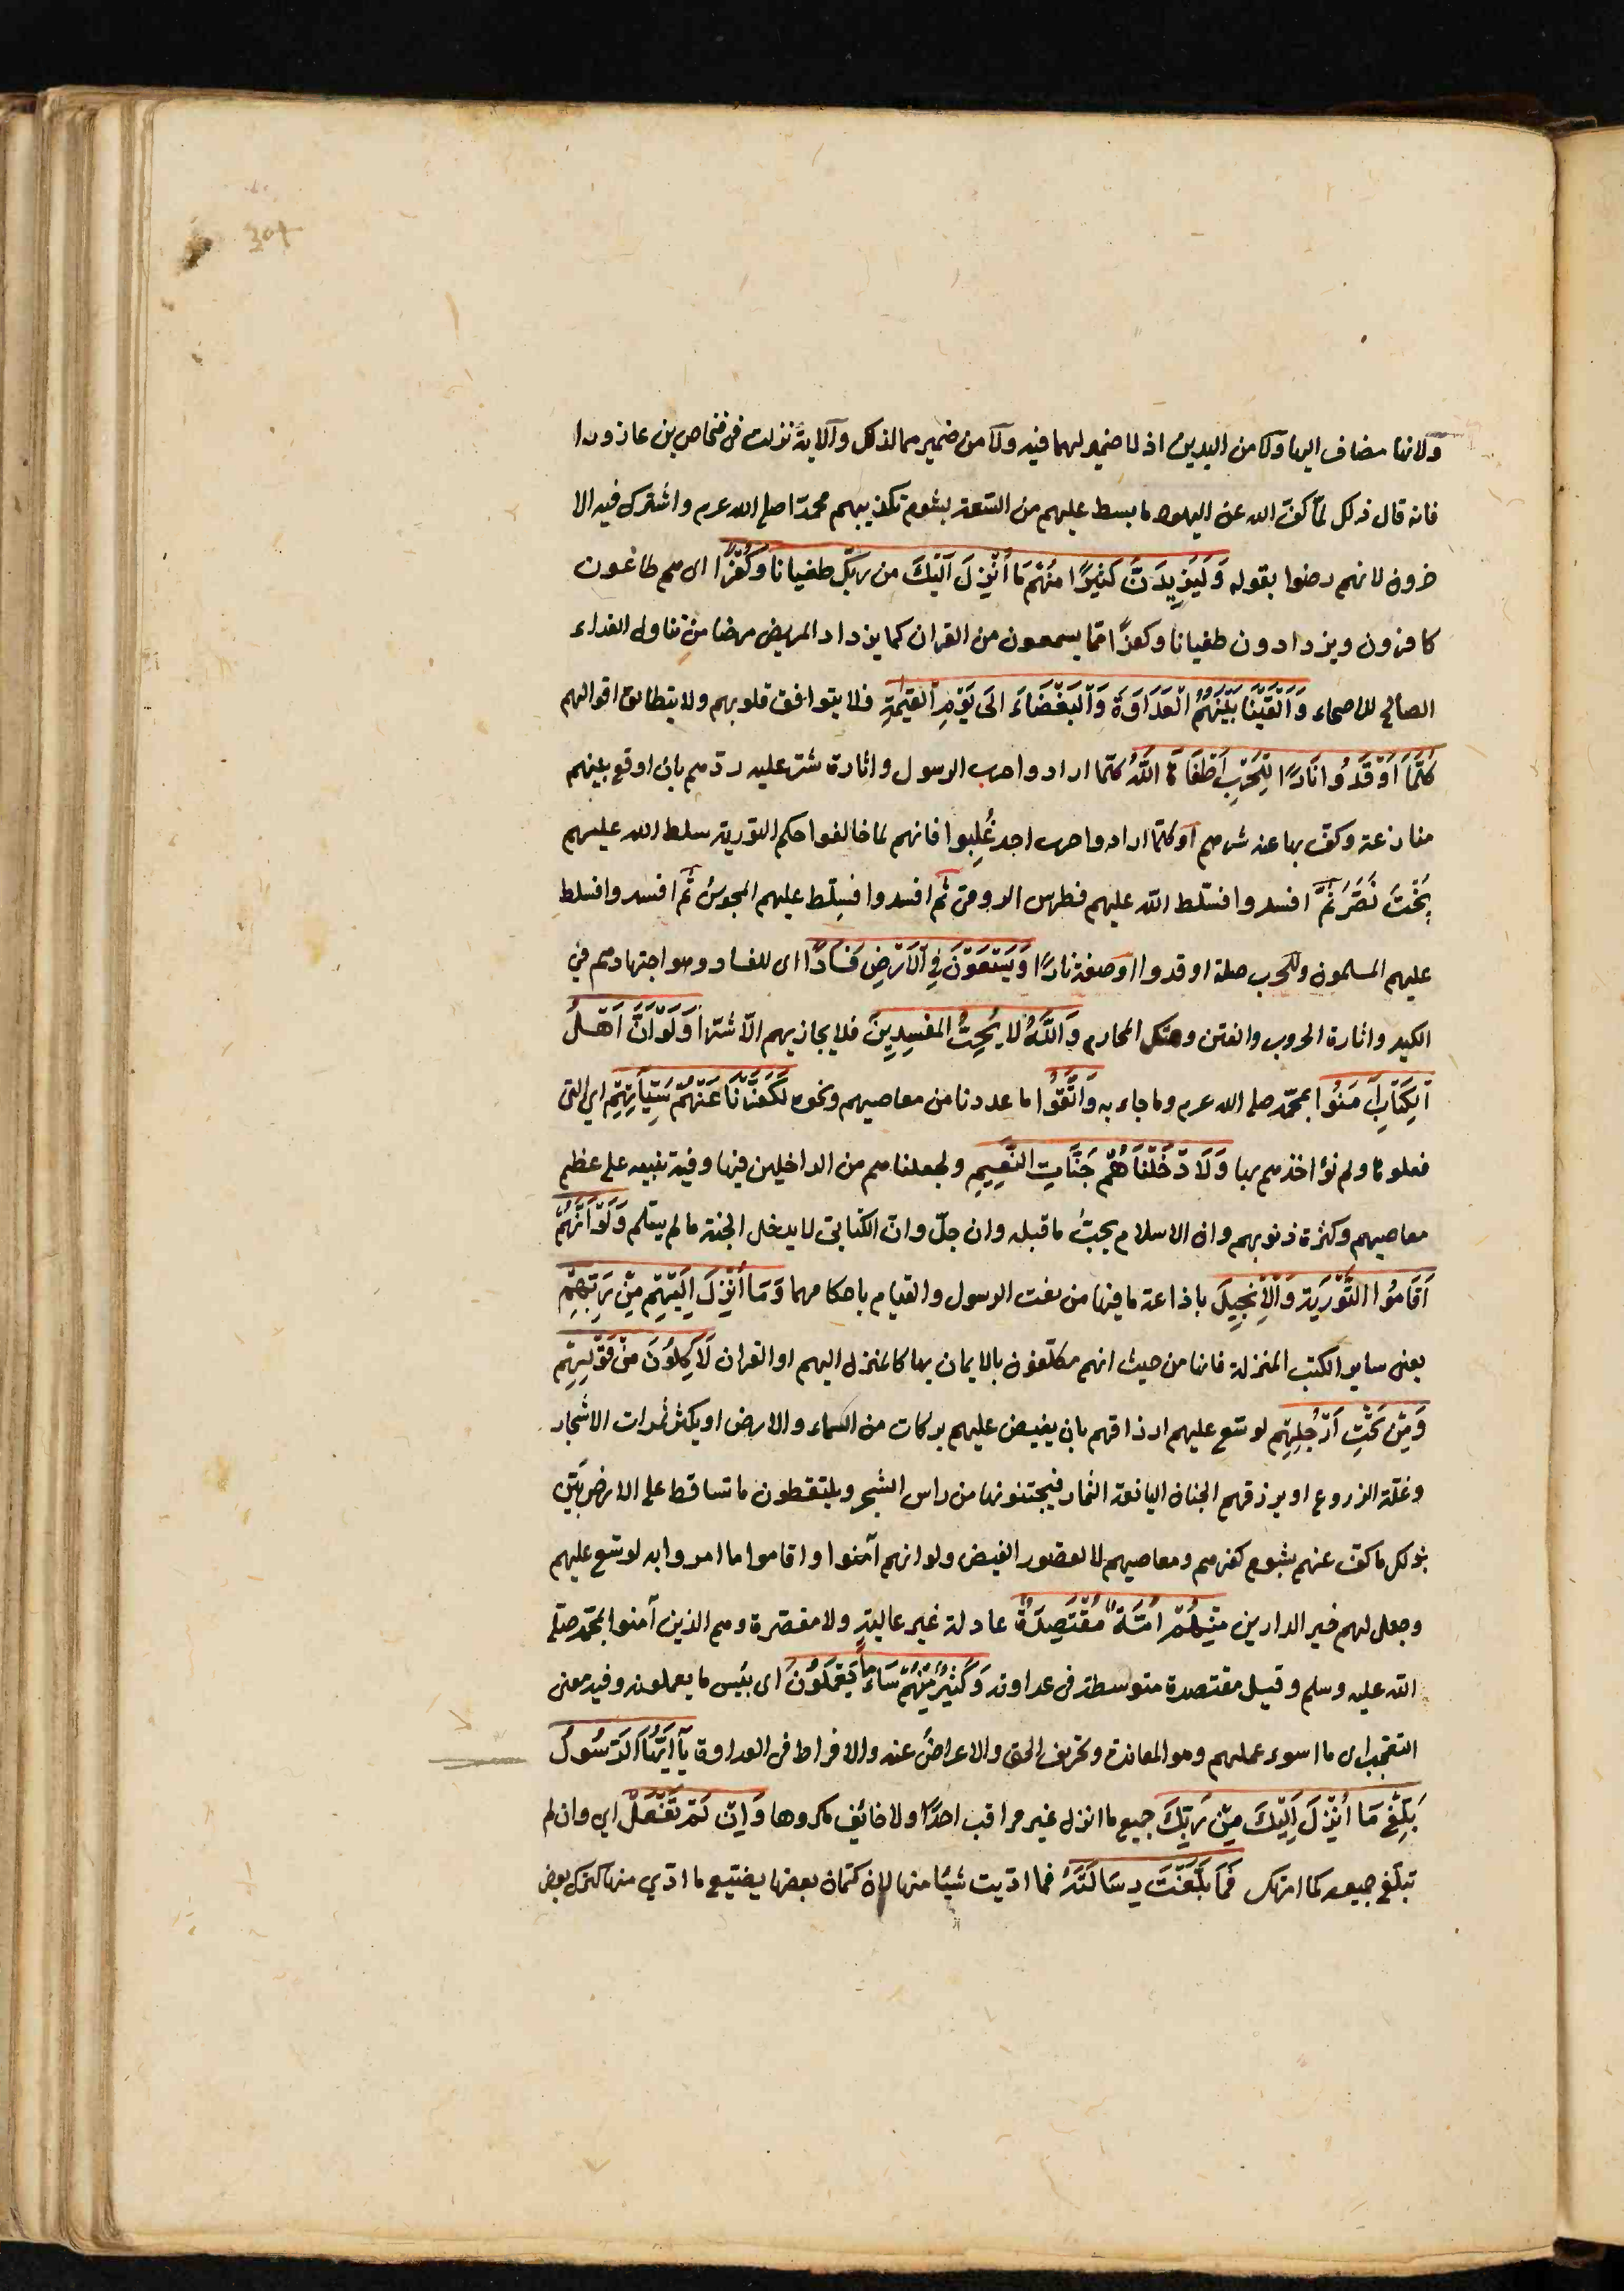 304
ولانها مضاف اليها ولا من اليدين اذ لا ضمير لهما فيه ولا من ضميرهما لذلك والآية نزلت فى فنحاص بن عازورا
فانه قال ذلك لمّا كفّ الله عن اليهود ما بسط عليهم من السّعة بشوم تكذيبهم محمدّا صلى الله عرم واشترك فيه الا
خرون لانهم رضوا بقوله وَلَيَزِيدَنَّ كَثِيرًا مِنْهُمْ مَا أُنْزِلَ اِلَيْكَ من ربّك طغيانا وَكُفْرًا اى هم طاغون
كافرون ويزدادون طغيانا وكفرًا مّما يسمعون من القران كما يزداد المريض مرضا من تناول الغداء
الصالح للاصحاء وَاَلْقَيْنَا بَيْنَهُمُ الْعَدَاوَةَ وَالْبَغْضَاءَ اِلَى يَوْمِ القِيٰمَةِ فلا يتوافق قلوبهم ولا يتطابق اقوالهم
كُلَّمَا اَوْقَدُوا نَارًا لِلْحَرْبِ اَطْفَاَهَا اللَّهُ كلّما ارادوا حرب الرسول واثارة شرّ عليه ردّهم بان اوقع بينهم
منازعة وكفّ بها عنه شرهم او كلّما ارادوا حرب احد غُلِبوا فانهم لما خالفوا حكم التورية سلط الله عليهم
بُخْتَ نَصَّرَ ثُمَّ افسدوا فسّلط الله عليهم فطرس الرومىّ ثم افسدوا فسلّط عليهم المجوسَ ثم افسدوا فسلط
عليهم المسلمون وللحرب صلة اوقدوا او صفة نارًا وَيَسْعَوْنَ فِي الْاَرْضِ فَسَادًا اى للفساد وهو اجتهادهم في
الكيد واثارة الحروب والفتن وهتك المحارم وَاللَّهُ لَا يُحِبُّ المفسِدِينَ فلا يجازيهم الّا شرّا وَلَوْ اَنَّ اَهْلَ
الْكِتَابِ آمَنُوا بمحمّد صلى الله عرم وما جاء به وَاتَّقَوْا ما عددنا من معاصيهم ونحوه لَكَفَّرْنَا عَنْهُمْ سَيِّاٰتِهِمْ اي التى
فعلوها ولم نؤاخذهم بها وَلَاَدْخَلْنَاهُمْ جَنَّاتِ النَّعِيمِ ولجعلناهم من الداخلين فيها وفيه تنبيه على عظم
معاصيهم وكثرة ذنوبهم وان الاسلام يجبّ ما قبله وان جلّ وانّ الكتابىّ لا يدخل الجنة ما لم يسلم وَلَوْ اَنَّهُمْ
اَقَامُوا التَّوْرَيةَ وَالْاِنْجِيلَ باذاعة ما فيها من نعت الرسول والقيام باحكامهما وَمَا اُنْزِلَ اِلَيْهِمْ مِنْ رَبِّهِمْ
يعنى ساير الكتب المنزلة فانها من حيث انهم مكلّفون بالايمان بها كالمنزل اليهم او القران لَاَكَلُوا مِنْ فَوْقِهِمْ
وَمِنْ تَحْتِ اَرْجُلِهِمْ لوسّع عليهم ارزاقهم بان يفيض عليهم بركات من السماء والارض او يكثر ثمرات الاشجار
وغلّة الزروع او يرزقهم الجنان اليانعة الثمار فيجتنونها من راس الشجر ويلتقطون ما تساقط على الارض بيّن
بذلك ما كفّ عنهم بشوم كفرهم ومعاصيهم لا لقصور الفيض ولو انهم آمنوا واقاموا ما امروا به لوسّع عليهم
وجعل لهم خير الدارين مِنْهُمْ اُمَّةٌ مُقْتَصِدَةٌ عادلة غير غالية ولا مقصّرة وهم الذين آمنوا بمحّمد صلّى
الله عليه وسلم وقيل مقتصدة متوسطة فى عداوته وَكَثِيرٌ مِنْهُمْ سَاءَ مَا يَعْمَلُونَ اى بئس ما يعملونه وفيه معنى
التعّجب اى ما اسوء عملهم وهو المعاندة وتحريف الحق والاعراض عنه والافراط فى العداوة يَا اَيُّهَا الرَّسُولُ
بَلِّغْ مَا اُنْزِلَ اِلَيْكَ مِنْ رَبِّكَ جميع ما انزل غير مراقب احدًا ولا خائف مكروها وَاِنْ لَمْ تَفْعَلْ اي وان لم
تبلّغ جميعه كما امرتك فَمَا بَلَّغْتَ رِسَالَتَهُ فما ادّيت شيئا منها لان كتمان بعضها يضيّع ما ادّي منها كترك بعض